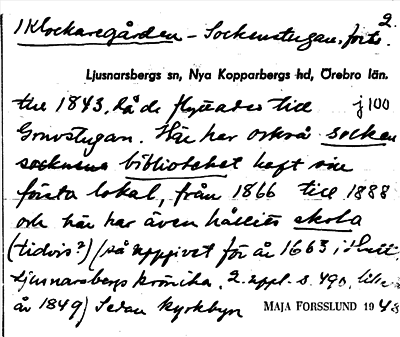 2.
1 Klockaregården – Sockenstugan, forts.
Ljusnarsbergs sn, Nya Kopparbergs hd, Örebro län.
till 1843, då de flyttades till j100
Gruvstugan. Här har också socken
biblioteket haft sin
första lokal, från 1866 till 1888
och här har även hållits skola
(tidvis?) (så uppgivet för år 1663 i Hult,
Ljusnarsbergs krönika, 2. uppl. s. 490,
år 1849) Sedan kyrkbyn MAJA FORSSLUND 1948